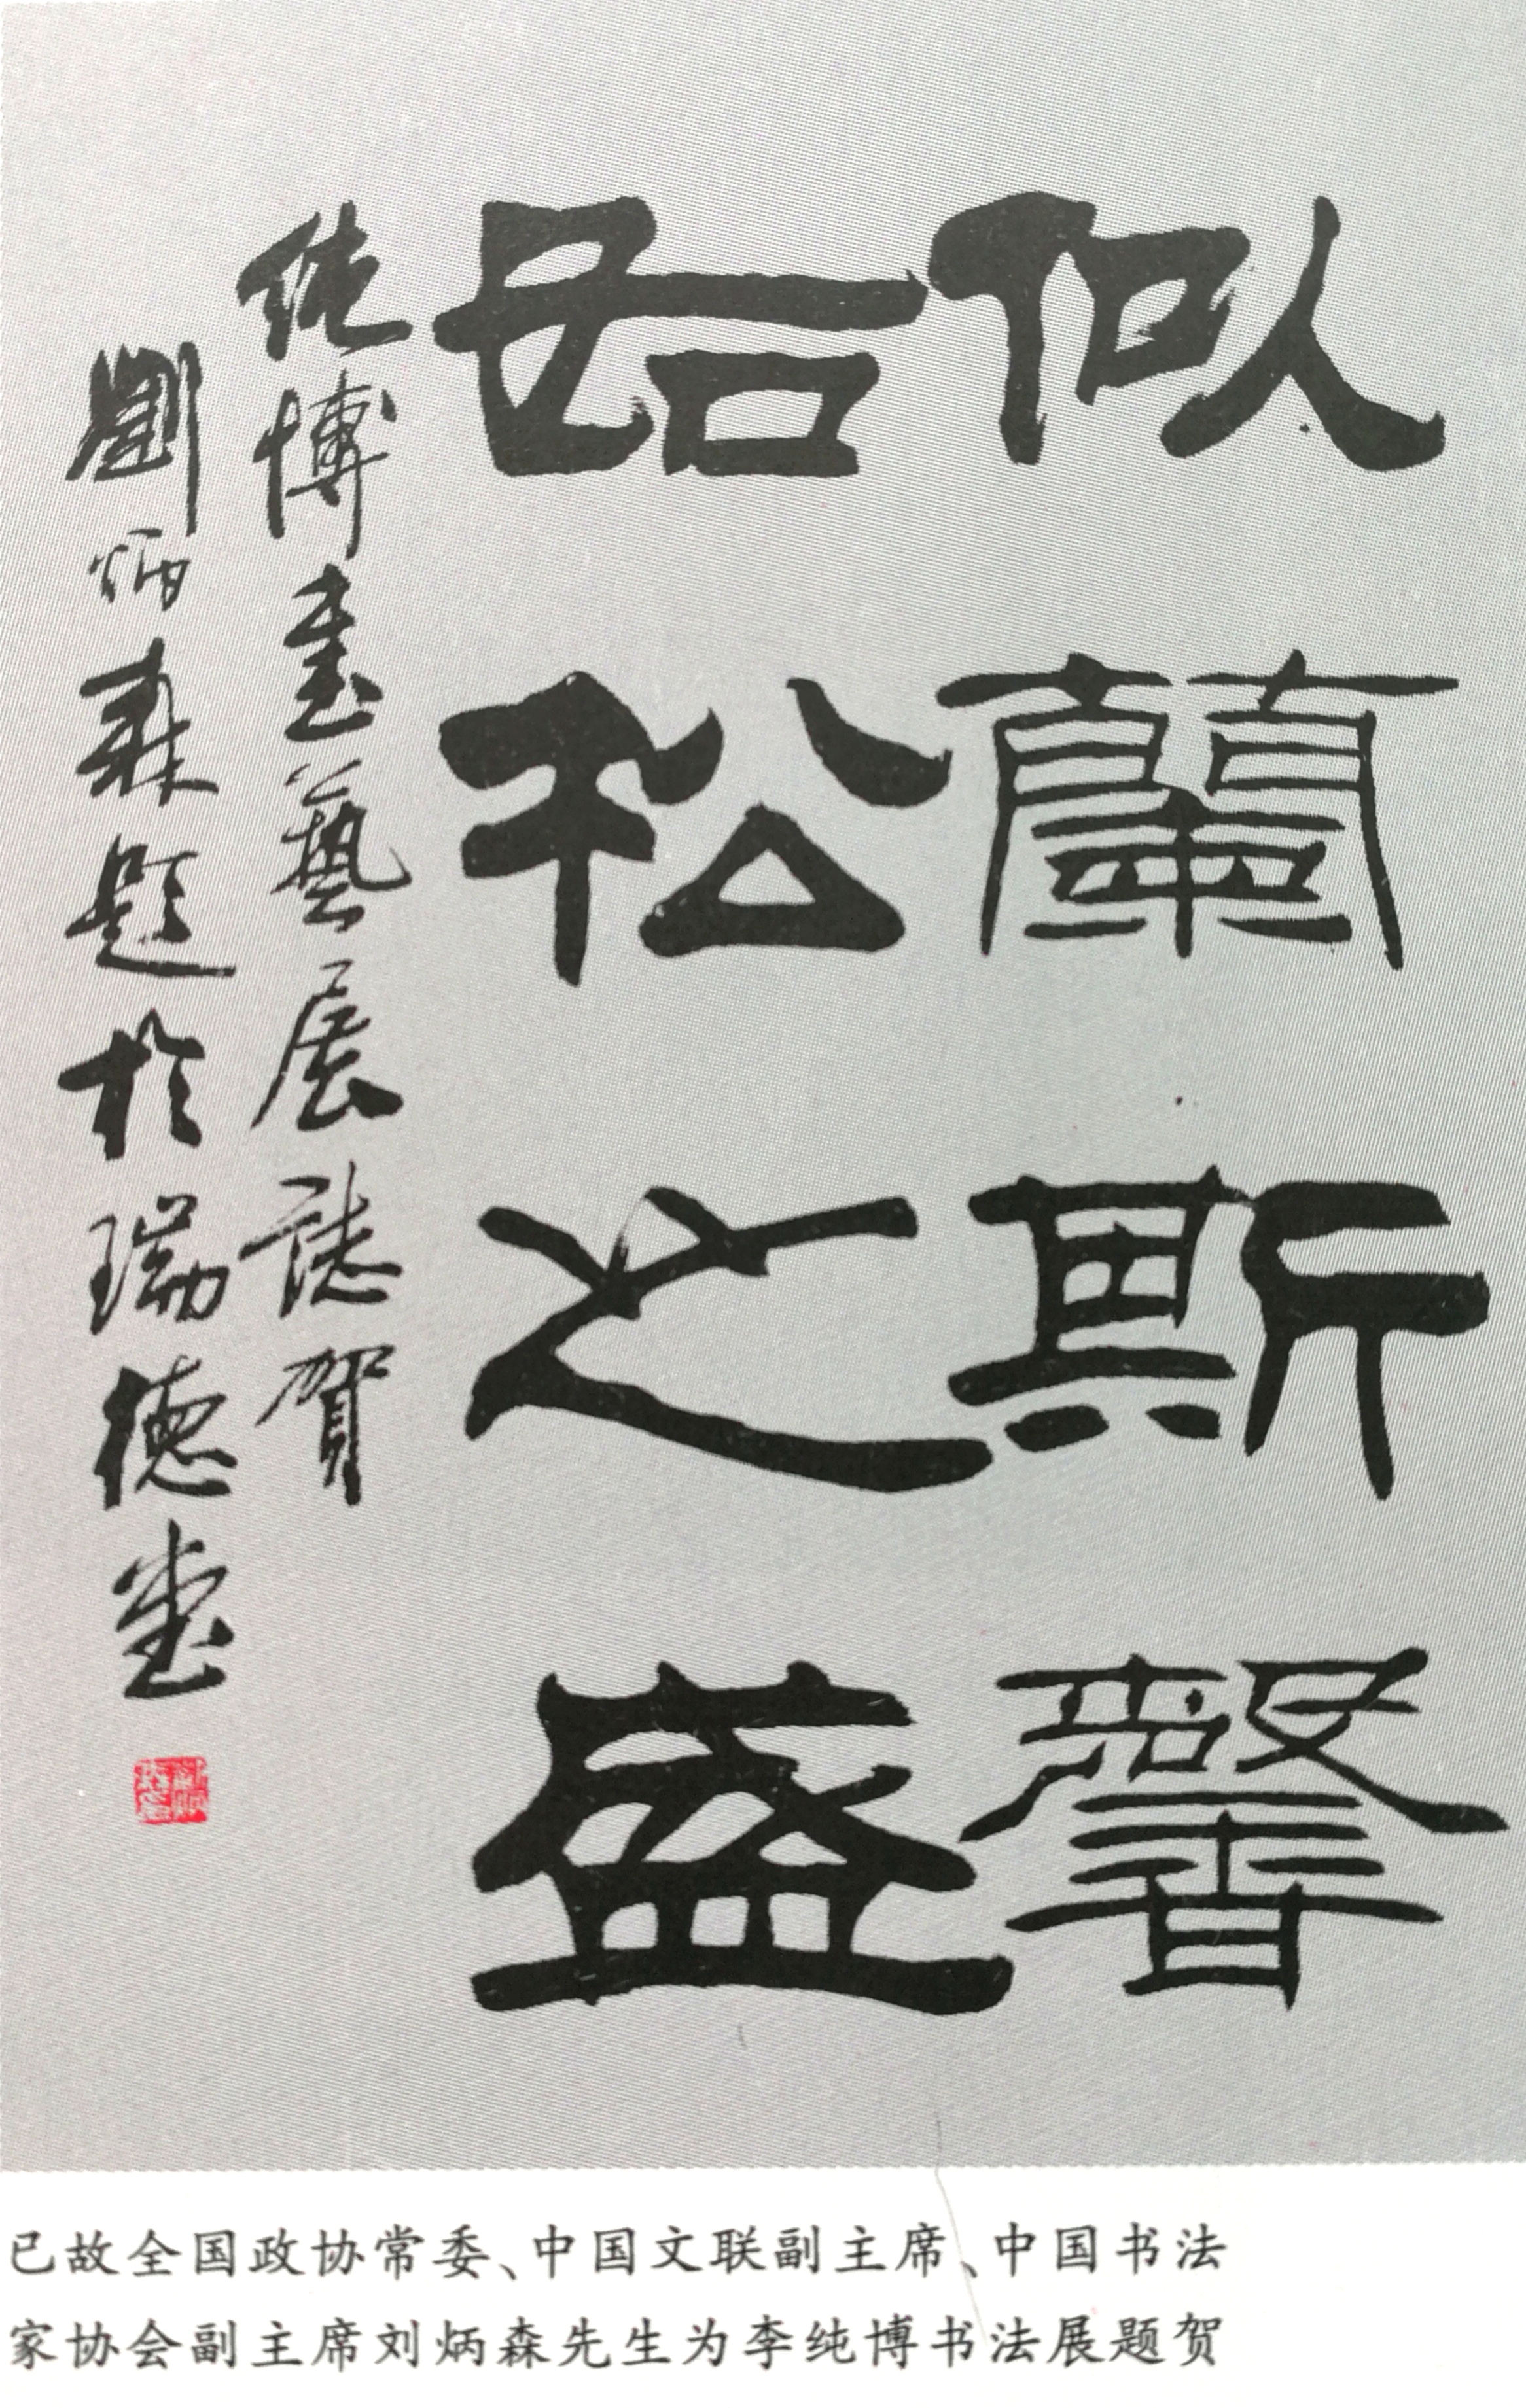 似蘭斯馨
如松之盛
純博書藝展誌賀
劉炳森題於瑞德堂
已故全国政协常委、中国文联副主席、中国书法
家协会副主席刘炳森先生为李纯博书法展题贺